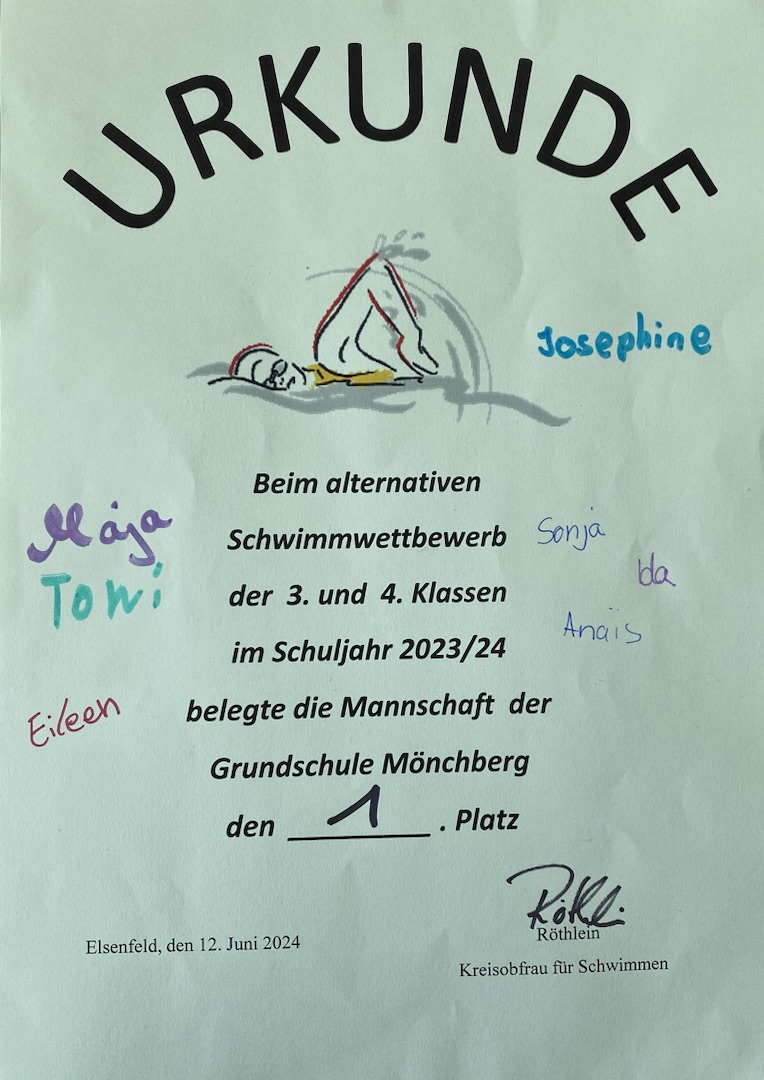 URKUNDE
Josephine
Maja
Toni
Eileen
Beim alternativen
Schwimmwettbewerb
der 3. und 4. Klassen
im Schuljahr 2023/24
belegte die Mannschaft der
Grundschule Mönchberg
den 1 . Platz
Sonja
Ida
Anaïs
Röthlein
Elsenfeld, den 12. Juni 2024
Kreisobfrau für Schwimmen